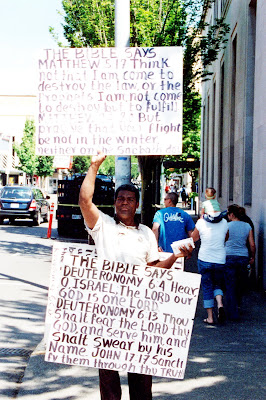 THE BIBLE SAYS
MATTHEW 5 17 Think
not that I am come to
destroy the law, or the
prophets I am not come
to destroy but to fulfill
MATTHEW But
pray that your flight
be not in the winter
neither on the Sabbath
THE BIBLE SAYS
DEUTERONOMY 6 4 Hear
O, ISRAEL The LORD our
GOD is one LORD
DEUTERONOMY 6 13 Thou
Shalt fear the LORD thy
GOD, and serve him and
Shalt Swear by his
Name JOHN 17 17 Sancti
fy them through thy TRUTH